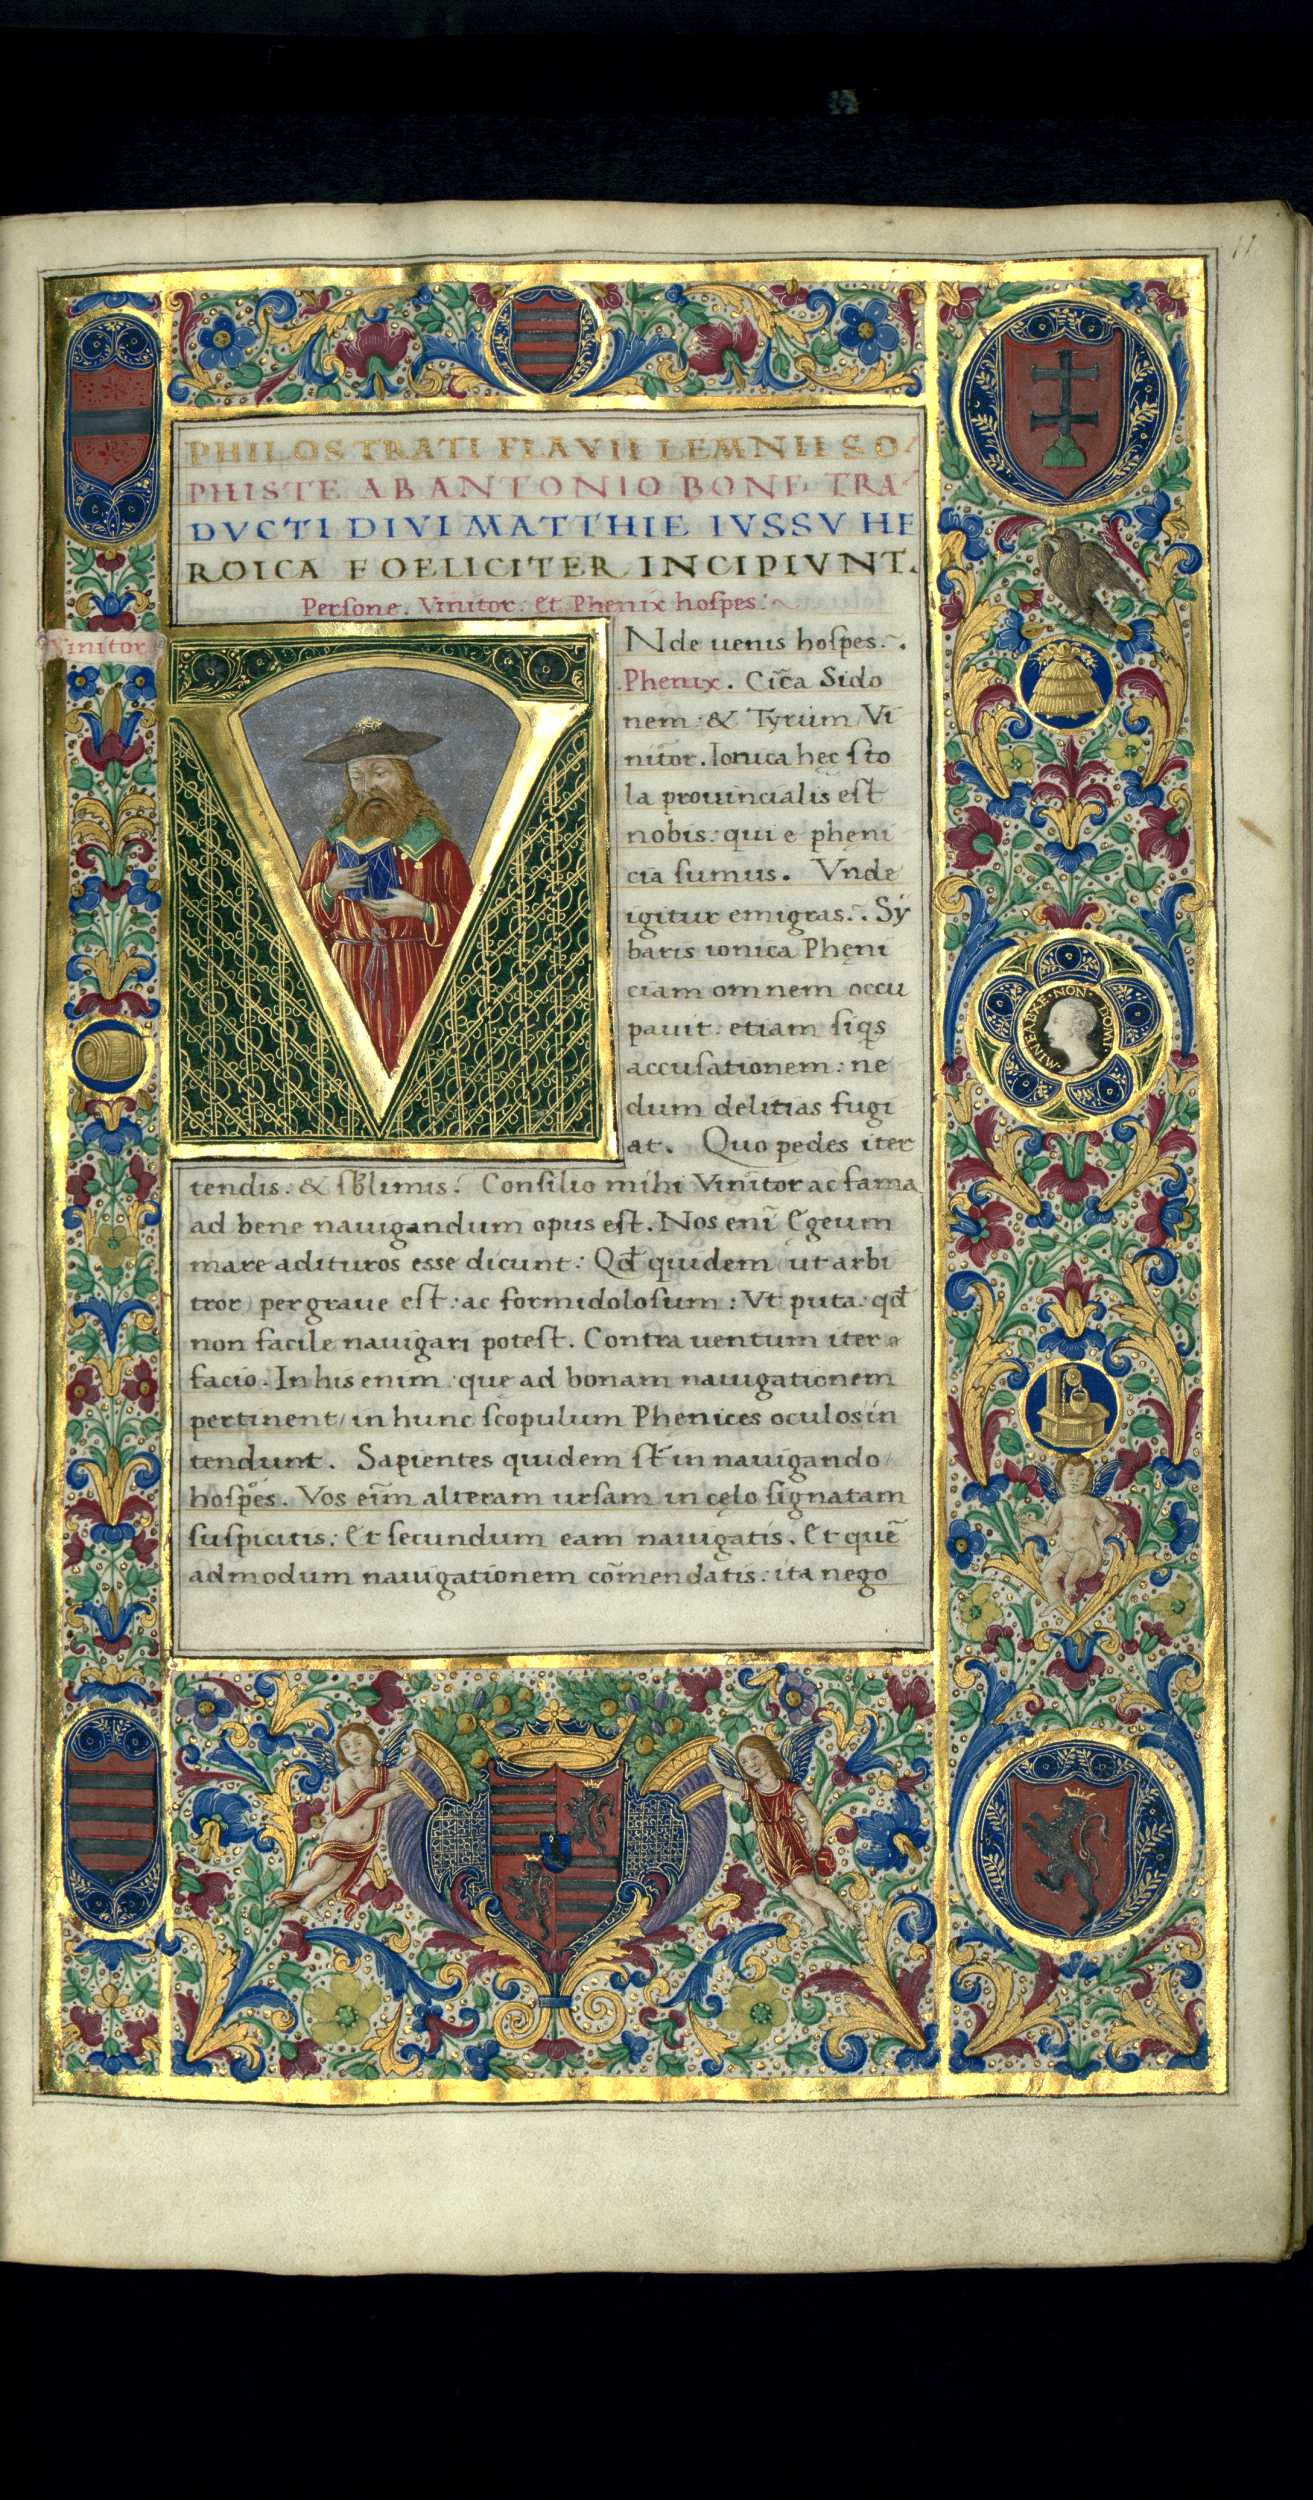 11
PHILOSTRATI FLAVII LEMNII SO/
PHISTE AB ANTONIO BONF. TRA/
DVCTI DIVI MATTHIE IVSSV HE
ROICA FOELICITER INCIPIVNT.
Persone. Vinitor. et Phenix hoſpes:
Vinitor
VNde uenis hoſpes.
Phenix. Cir̃ca Sido
nem: & Tyrum Vi
nitor. Ionica hęc ſto
la prouincialis eſt
nobis: qui e phęni
cia ſumus. Vnde
igitur emigras. Sÿ
baris ionica Phęni
ciam omnem occu
pauit. etiam ſiqs
accuſationem: ne
dum delitias fugi
at. Quo pedes iter
tendis: & ſblimis. Conſilio mihi Vinitor ac fama
ad bene nauigandum opus eſt. Nos eni᷃ Egeum
mare adituros esse dicunt: Qđ quidem ut arbi
tror pergraue eſt: ac formidoloſum: Vt puta: qđ
non facile nauigari poteſt. Contra uentum iter
facio. In his enim: quę ad bonam nauigationem
pertinent/ in hunc ſcopulum Phenices oculos in
tendunt. Sapientes quidem ſt̃ in nauigando
hoſpes. Vos eĩm alteram urſam in cęlo ſignatam
ſuſpicitis: Et ſecundum eam nauigatis. Et quẽ
admodum nauigationem com̃endatis: ita nego
MINERABRE · NON · DOMI ·